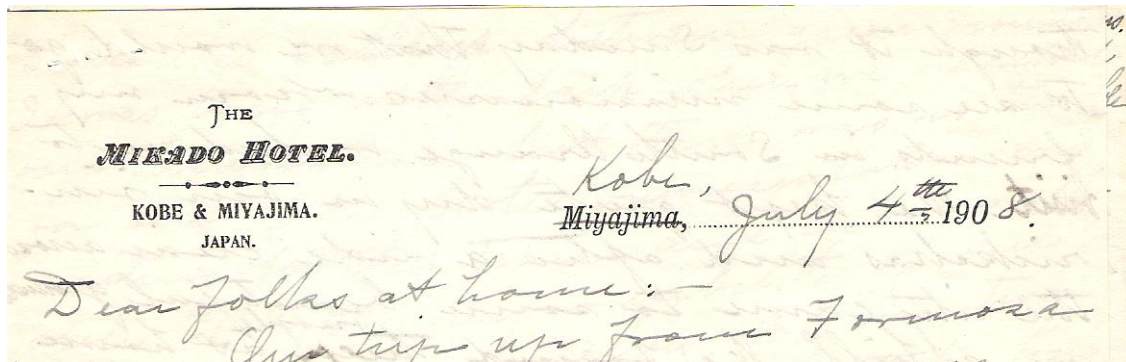 THE
MIKADO HOTEL.
KOBE & MIYAJIMA.
JAPAN.
Kobe,
Miyajima, July 4th 1908.
Dear folks at home:—
Our trip up from Formosa